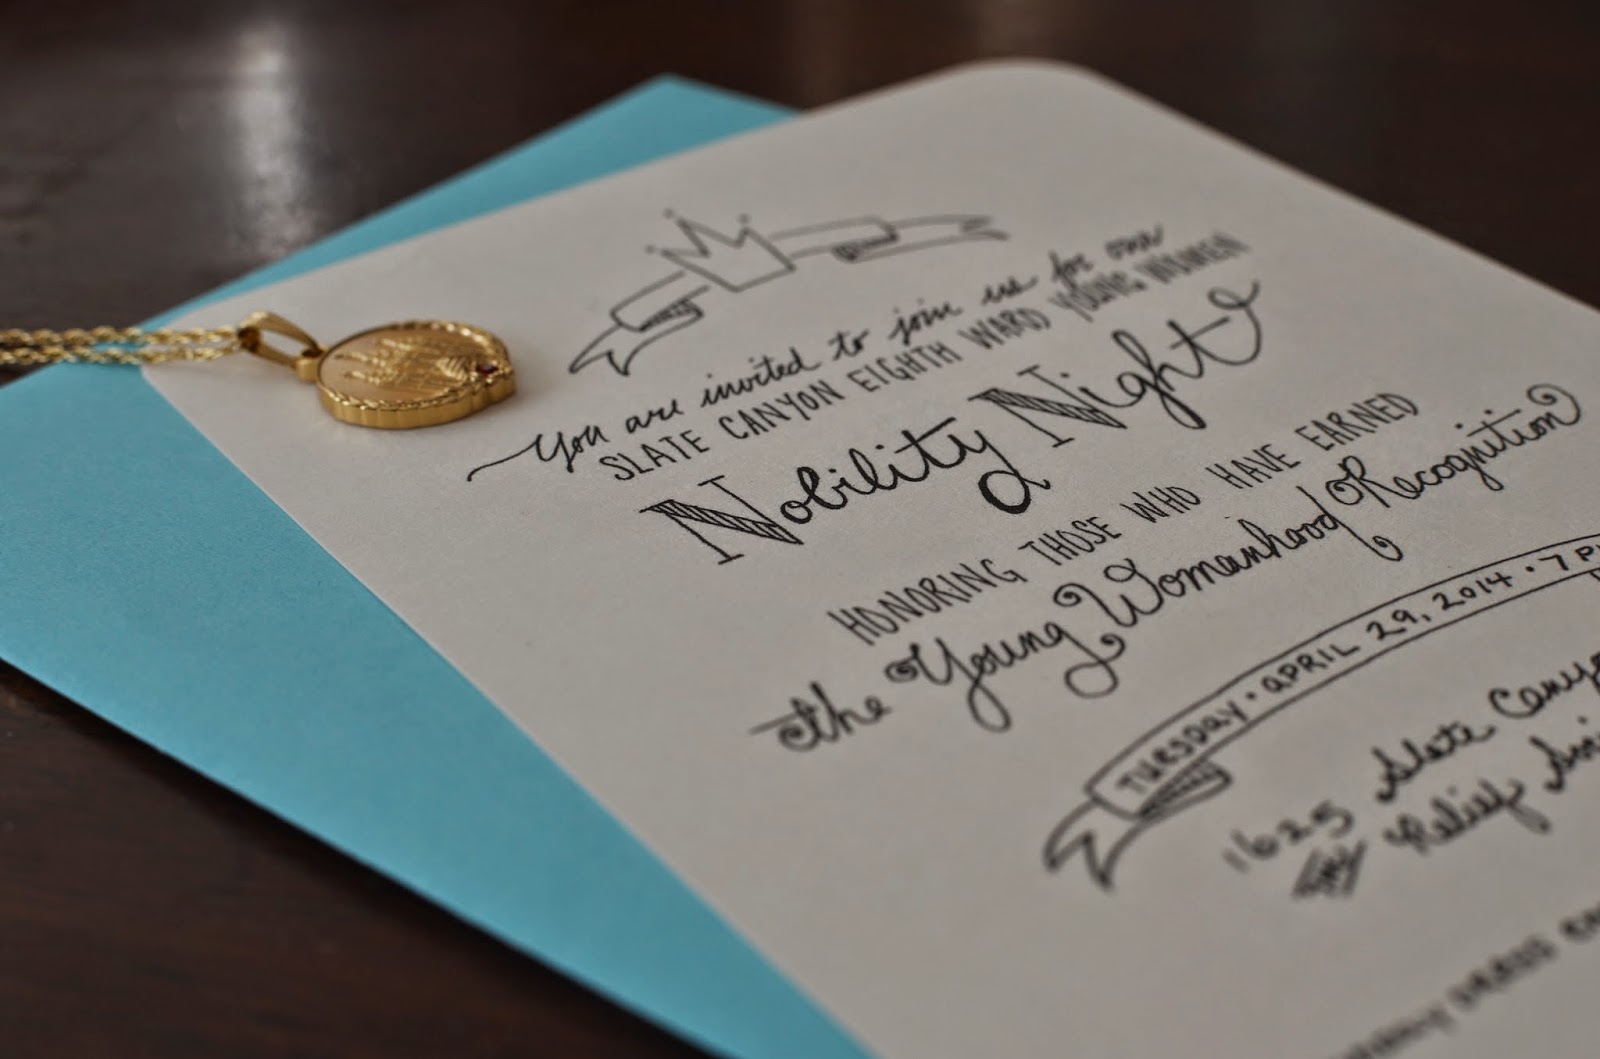 You are invited to join us for our
SLATE CANYON EIGHTH WARD YOUNG WOMEN
Nobility Night
HONORING THOSE WHO HAVE EARNED
the Young Womanhood Recognition
TUESDAY • APRIL 29, 2014 • 7 P
1625 Slate Canyo
Relief Soci